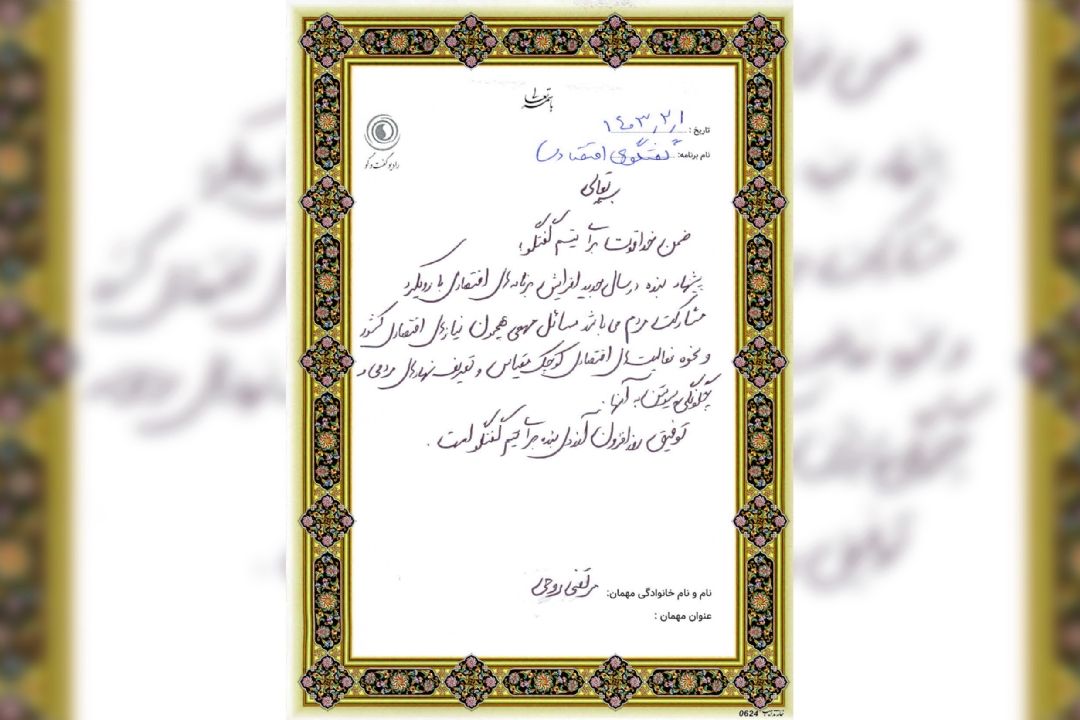 باسمه تعالی
رادیو گفت و گو
تاریخ: ۱۴۰۳/۲/۱
نام برنامه: گفتگوی اقتصادی
بسمه تعالی
ضمن خداقوت برای تیم گفتگو؛
پیشنهاد بنده در سال جدید افزایش برنامه‌های اقتصادی با رویکرد
مشارکت مردم می باشد مسائل مهمی همچون نیازهای اقتصادی کشور
و نحوه فعالیت‌های اقتصادی کوچک مقیاس و تعریف نهادهای مردمی و
چگونگی پیوستن به آنها.
توفیق روزافزون آرزوی بنده برای تیم گفتگو است.
نام و نام خانوادگی مهمان: مرتضی روحی
عنوان مهمان :
0624